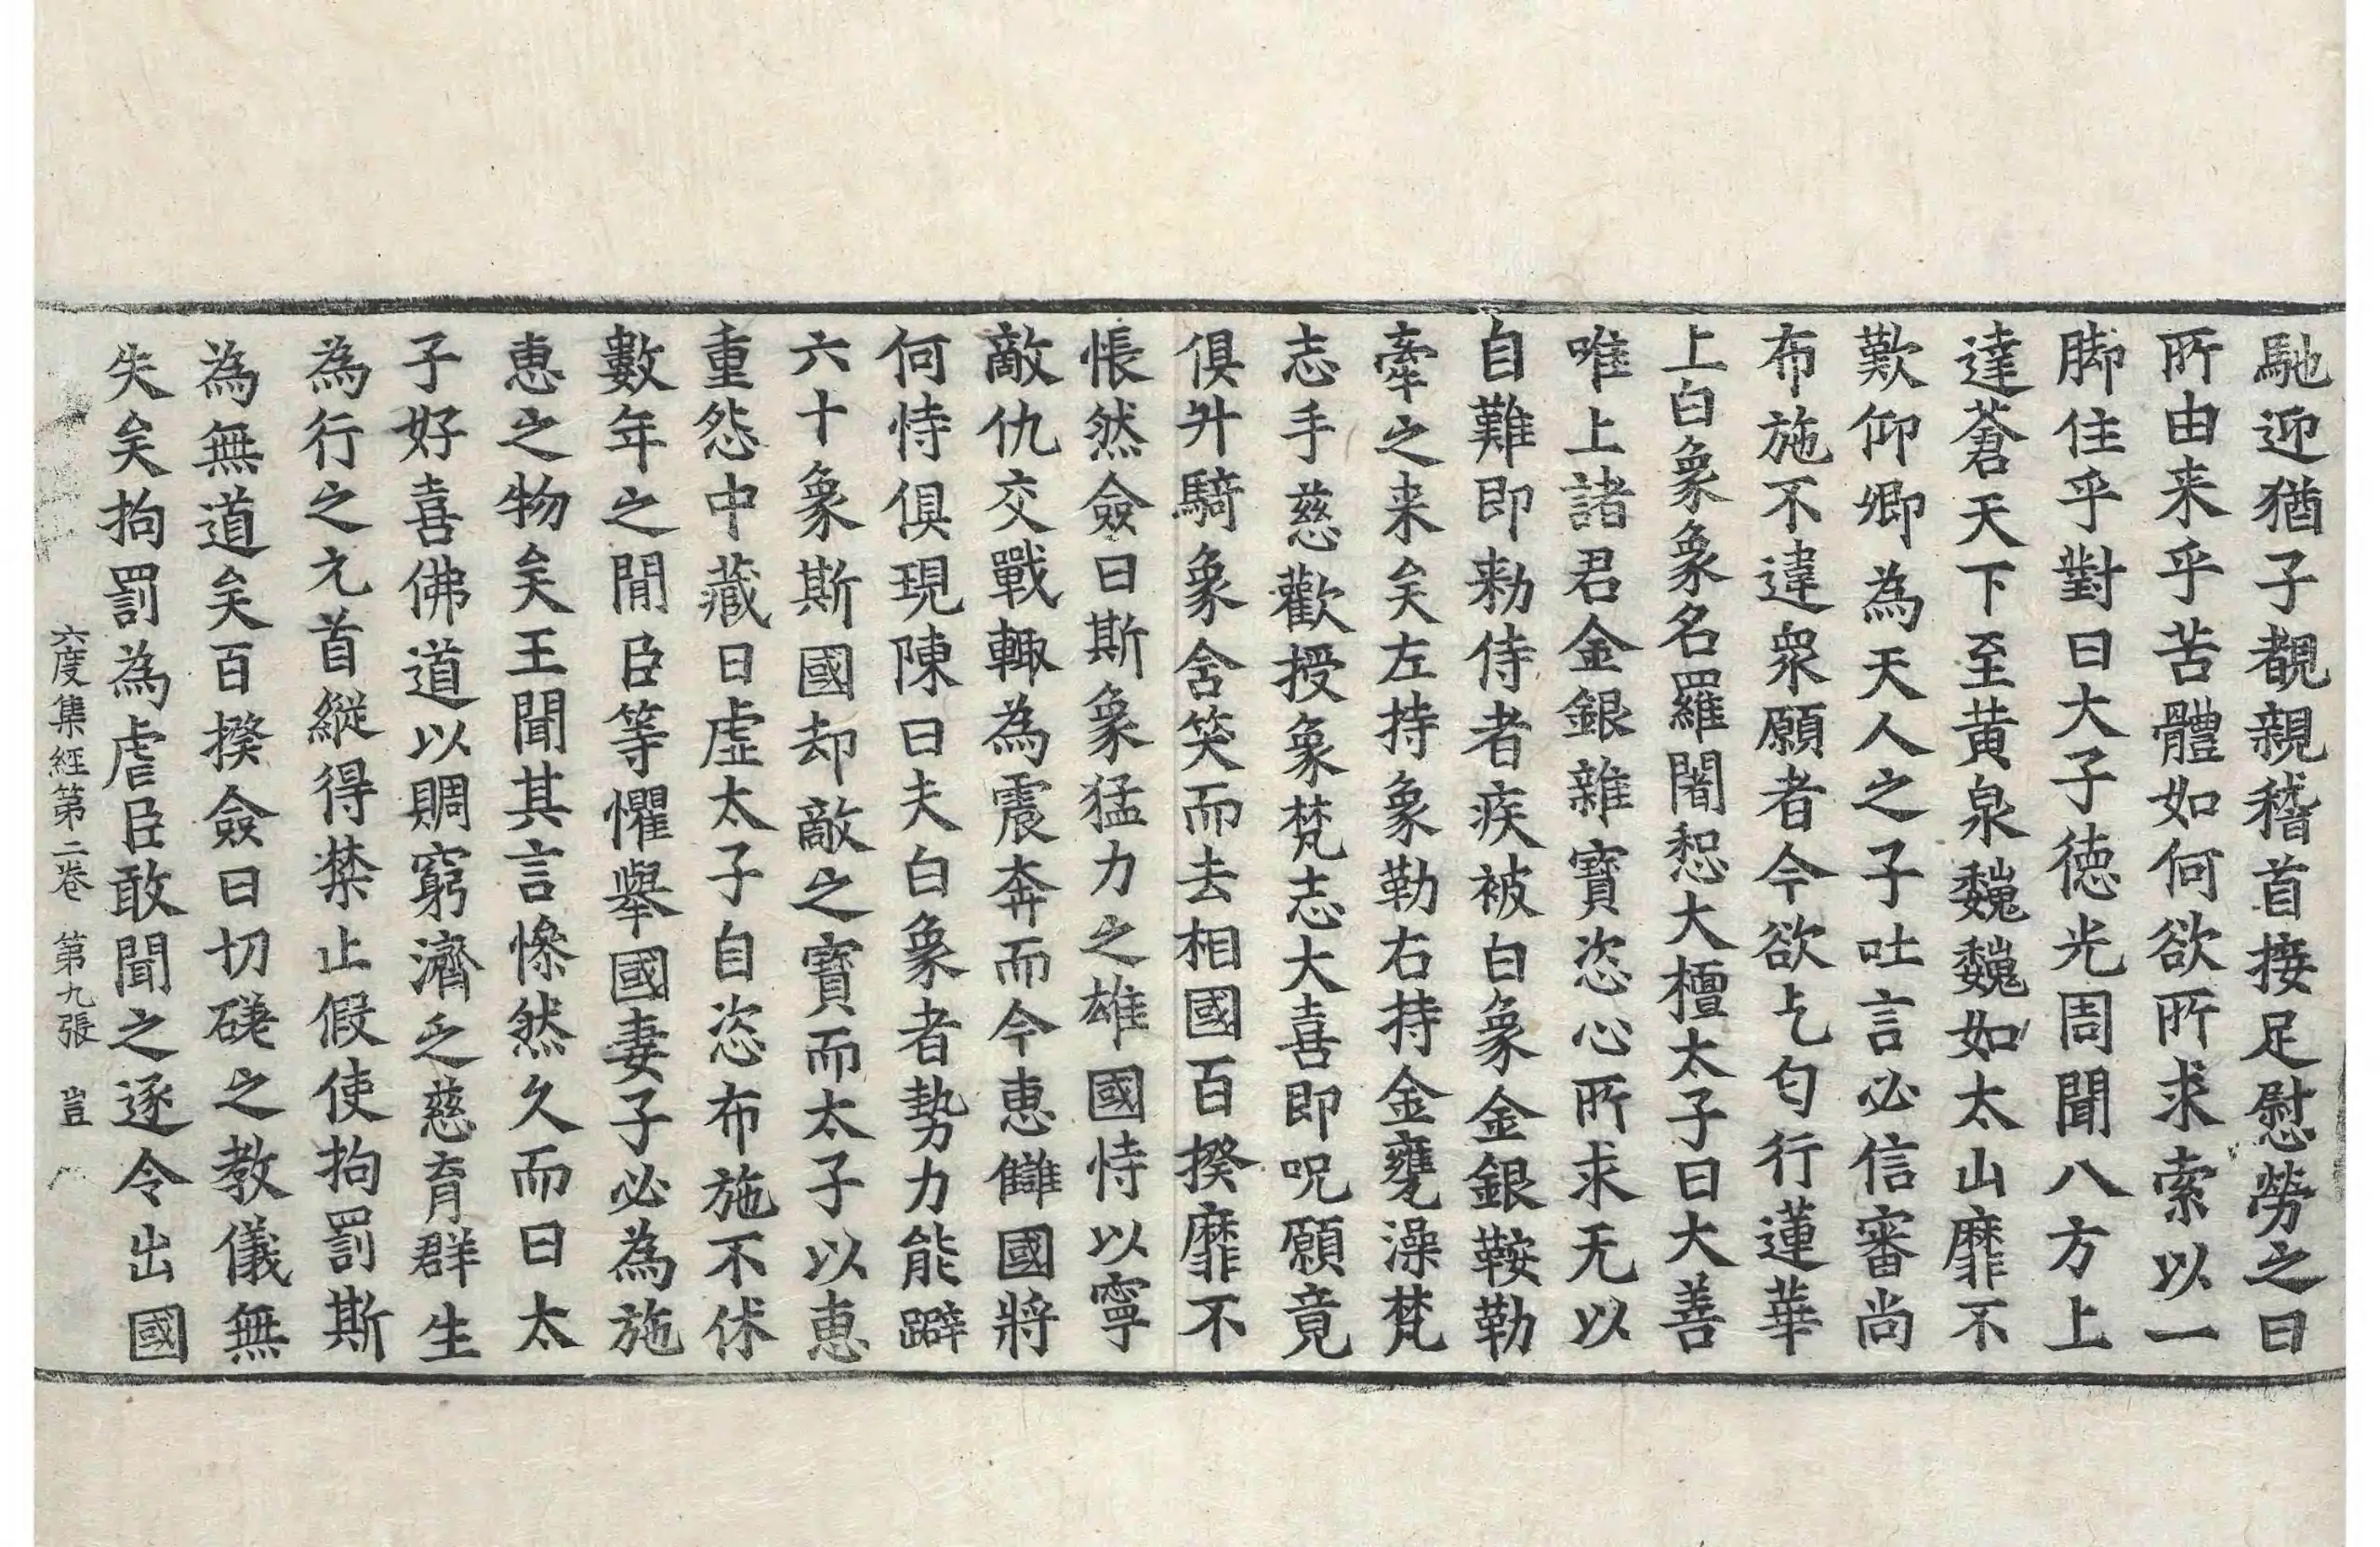 馳迎猶子覩親稽首接足慰勞之曰
所由来乎苦體如何欲所求索以一
脚住乎對曰大子德光周聞八方上
達蒼天下至黃泉巍巍如太山靡不
歎仰卿為天人之子吐言必信審尚
布施不違衆願者今欲乞匂行蓮華
上白象象名羅闍惒大檀太子曰大善
唯上諸君金銀雜寶恣心所求无以
自難即勑侍者疾被白象金銀鞍勒
牽之来矣左持象勒右持金甕澡梵
志手慈歡授象梵志大喜即呪願竟
俱升騎象含笑而去相國百揆靡不
悵然僉曰斯象猛力之雄國恃以寧
敵仇交戰輙為震奔而今恵讎國將
何恃俱現陳曰夫白象者勢力能躃
六十象斯國却敵之寶而太子以恵
重怨中藏日虛太子自恣布施不休
數年之閒臣等懼舉國妻子必為施
恵之物矣王聞其言慘然久而曰太
子好喜佛道以賙窮濟乏慈育群生
為行之元首縱得禁止假使拘罰斯
為無道矣百揆僉曰切磋之教儀無
失矣拘罰為虐臣敢聞之逐令出國
六度集經第二卷 第九張 豈